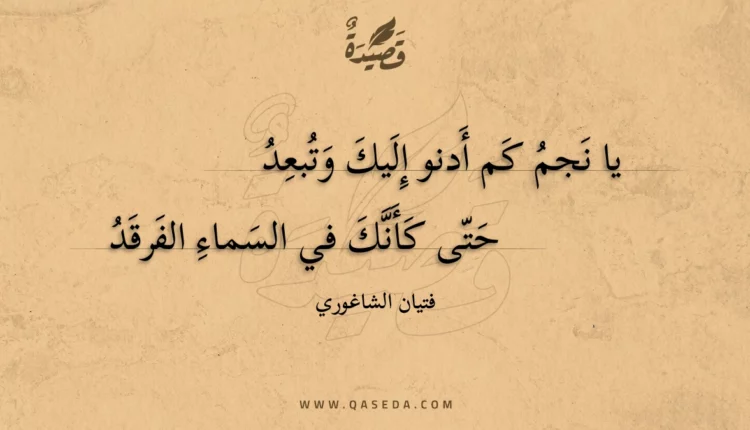 قَصِيدَةٌ
يا نَجمُ كَم أَدنو إِلَيكَ وَتُبعِدُ
حَتّى كَأَنَّكَ في السَماءِ الفَرقَدُ
فتيان الشاغوري
WWW.QASEDA.COM